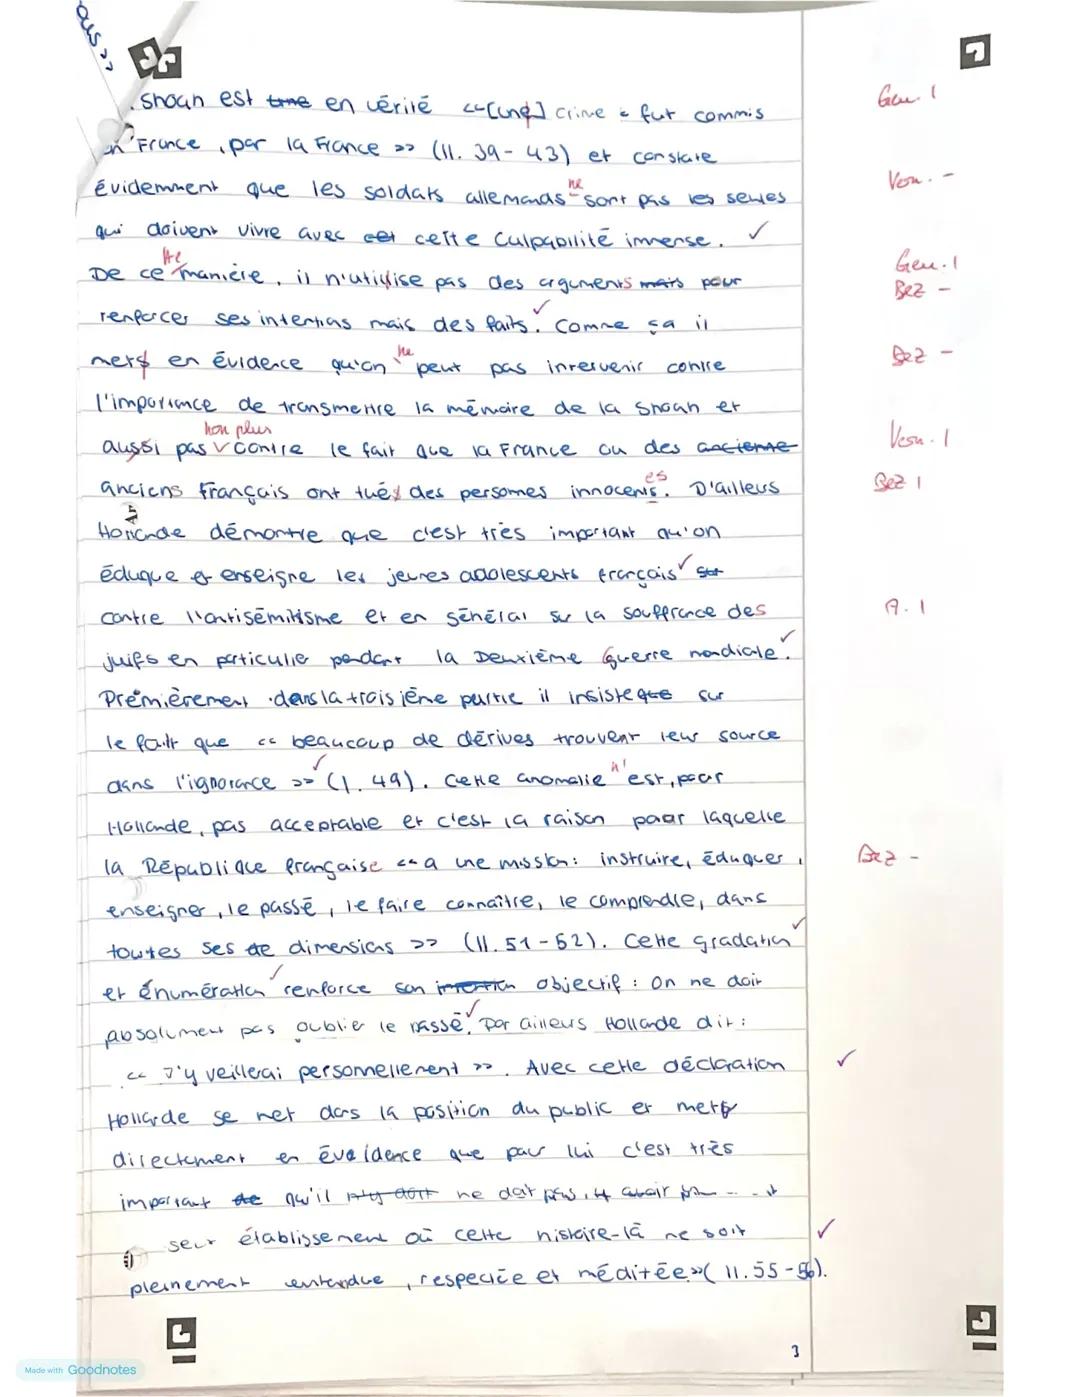 ous >>
Shoah est en vérité <<[une] crime fut commis
Gen. I
en France, par la France >> (ll. 39-43) et constate
évidemment que les soldats allemands ne sont pas les seules
Vern. -
qui doivent vivre avec cet cette culpabilité immense. ✓
De ce tte manière, il n'utilise pas des arguments mais pour
Gen. I
Bez -
renforcer ses intentions mais des faits. ✓ Comme ça il
mets en évidence qu'on ne peut pas intervenir contre
Bez -
l'importance de transmettre la mémoire de la Shoah et
aussi pas non plus contre le fait que la France ou des ancienne
Vern. I
anciens français ont tués des personnes innocents es. D'ailleurs
Bez I
Hollande démontre que c'est très important qu'on
éduque et enseigne les jeunes adolescents français ✓ sur
contre l'antisémitisme et en général sur la souffrance des
A. I
juifs en particulier pendant la Deuxième Guerre mondiale. ✓
Premièrement dans la troisième partie il insiste que sur
le fait que << beaucoup de dérives trouvent leur source
dans l'ignorance >> ✓ (l. 49). Cette anomalie n'est, pour
Hollande, pas acceptable et c'est la raison pour laquelle
la République française << a une mission: instruire, éduquer,
Bez -
enseigner, le passé, le faire connaître, le comprendre, dans
toutes ses de dimensions >> (ll. 51-52). Cette gradation ✓
et énumération ✓ renforce son intention objectif : On ne doit
absolument pas oublier le passé. ✓ Par ailleurs Hollande dit:
<< J'y veillerai personnellement >>. Avec cette déclaration ✓
Hollande se met dans la position du public et mets
directement en évidence que pour lui c'est très
important de qu'il ne doit pas, y avoir
seul établissement où cette histoire-là ne soit ✓
pleinement entendue, respectée et méditée>> (ll. 55-56).
3
Made with Goodnotes